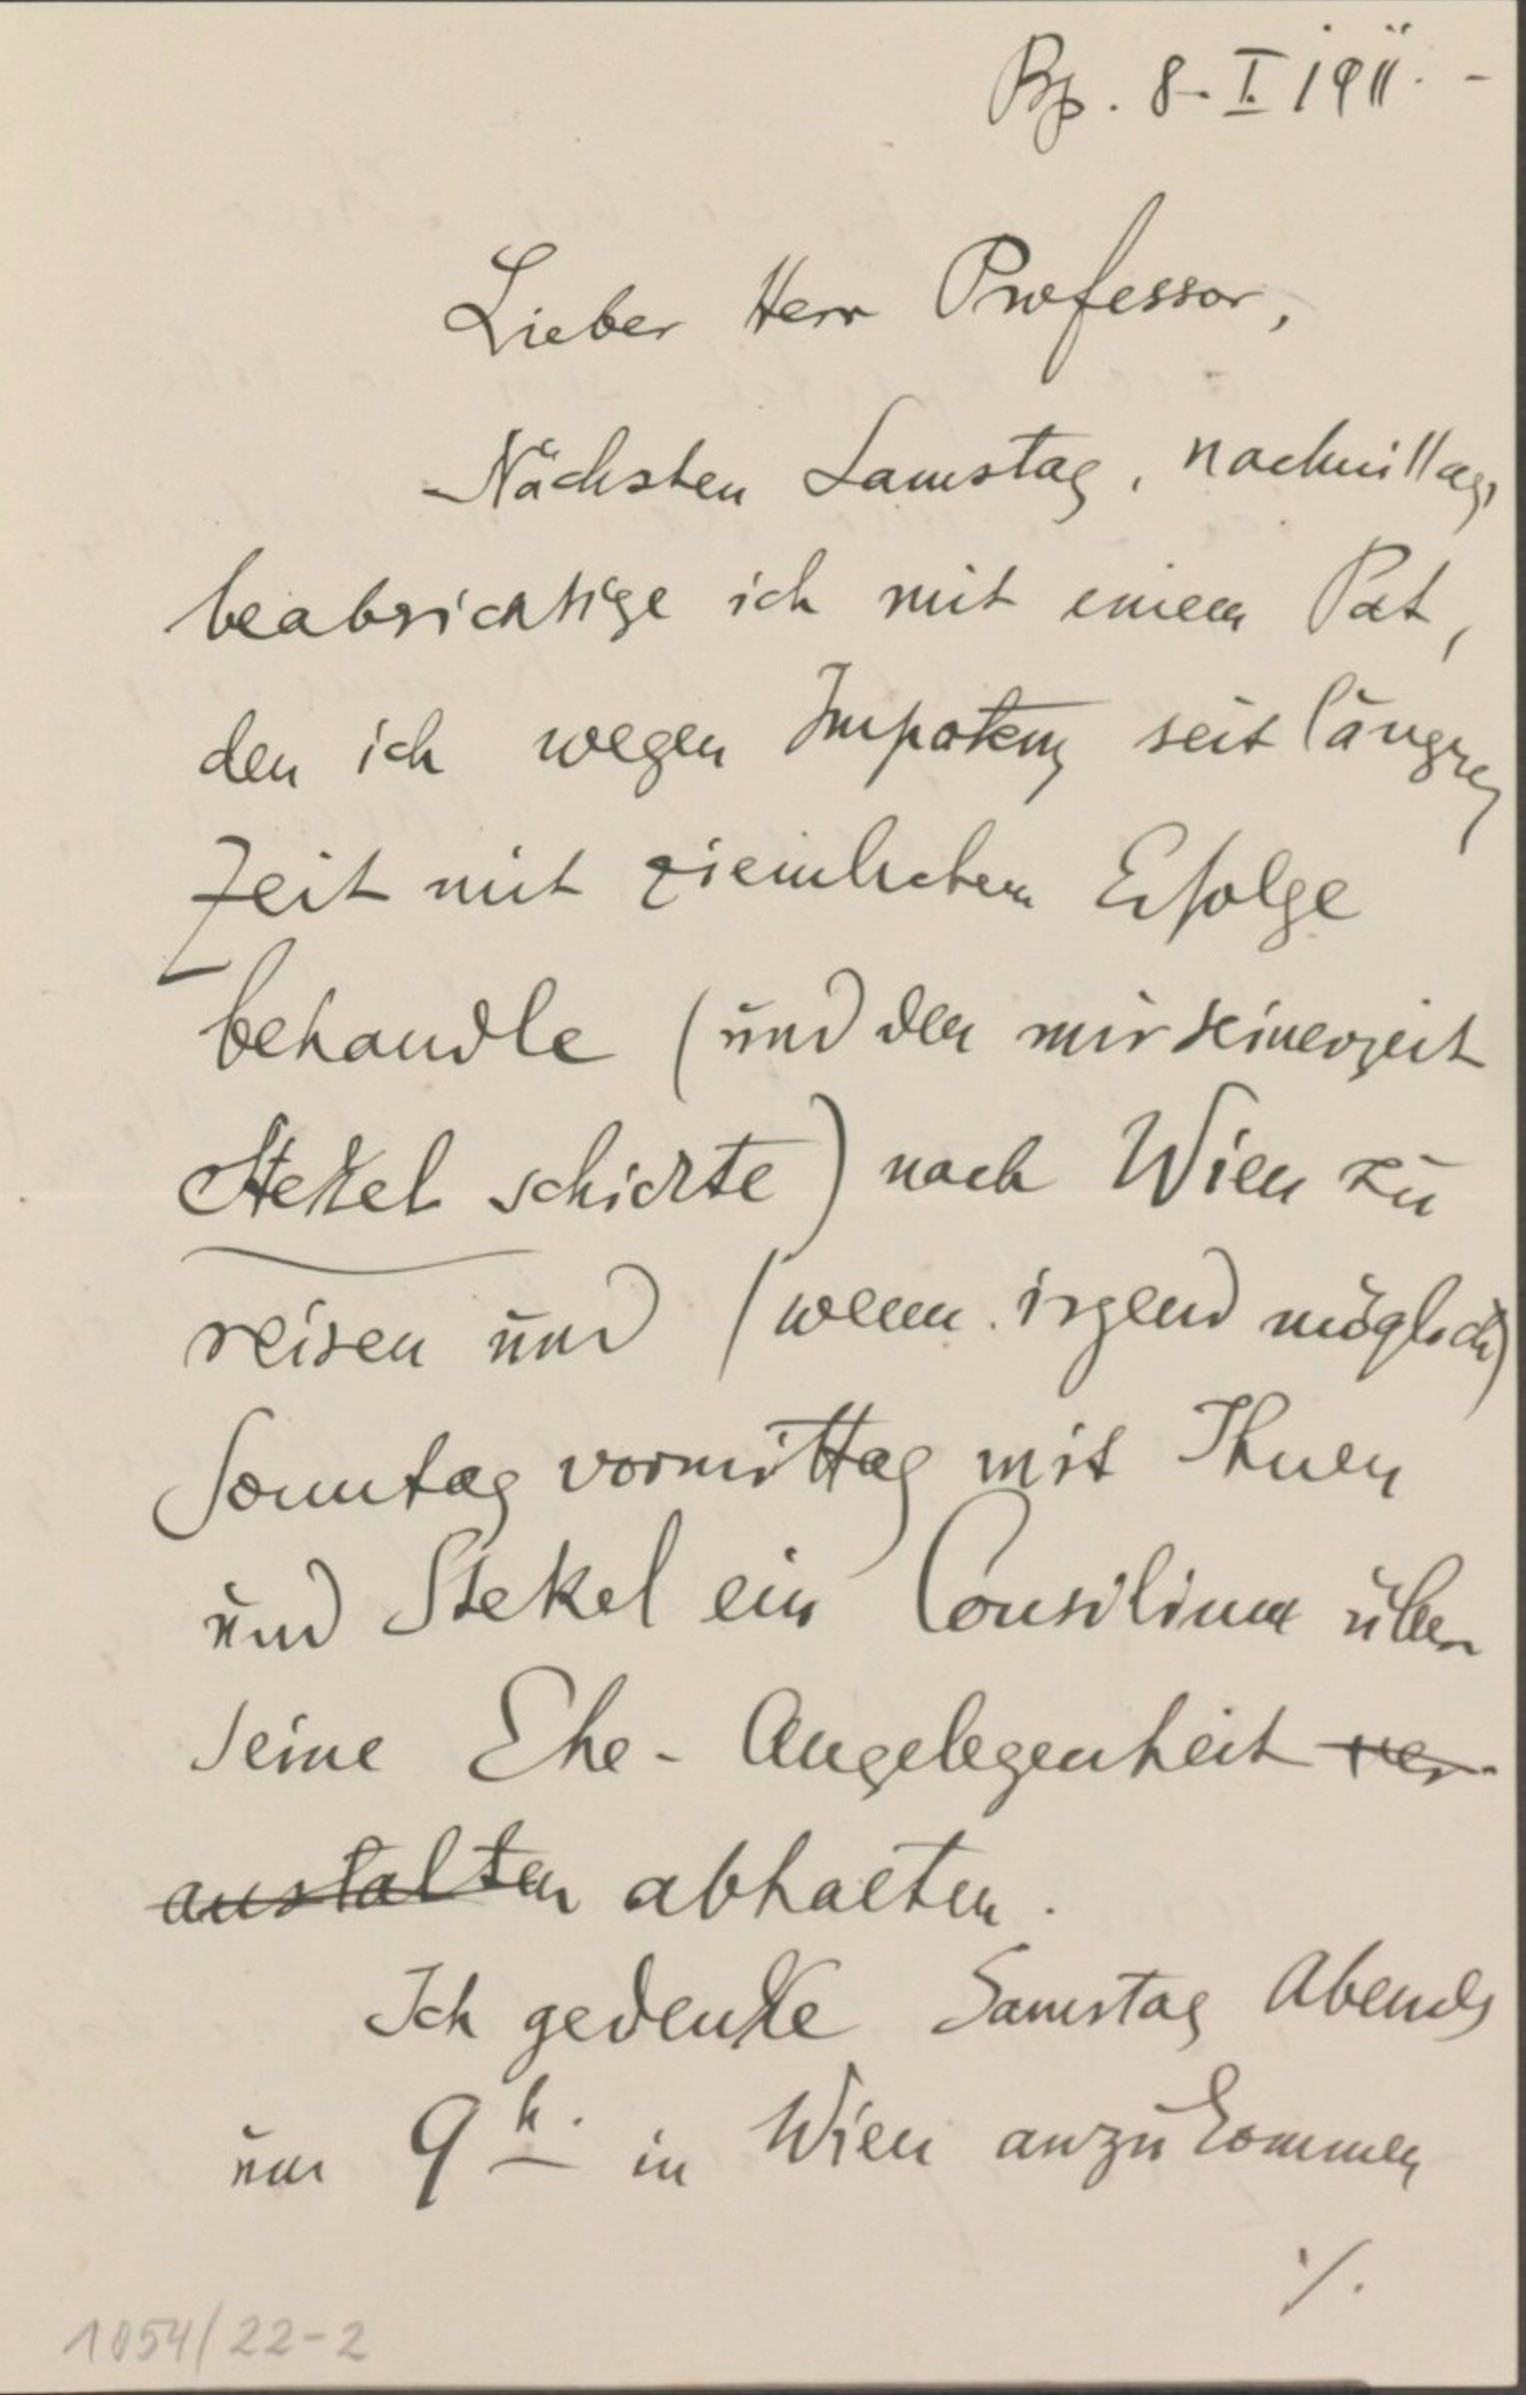 Bp. 8. I. 1911. -
Lieber Herr Professor,
Nächsten Samstag, nachmittag,
beabsichtige ich mit einem Pat,
den ich wegen Impotenz seit längrer
Zeit mit ziemlichem Erfolge
behandle (und den mir seinerzeit
Stekel schickte) nach Wien zu
reisen und (wenn irgend möglich)
Sonntag vormittag mit Ihnen
und Stekel ein Consilium über
seine Ehe-Angelegenheit ver-
anstalten abhalten.
Ich gedenke Samstag Abends
um 9h. in Wien anzukommen
./.
1054/22-2